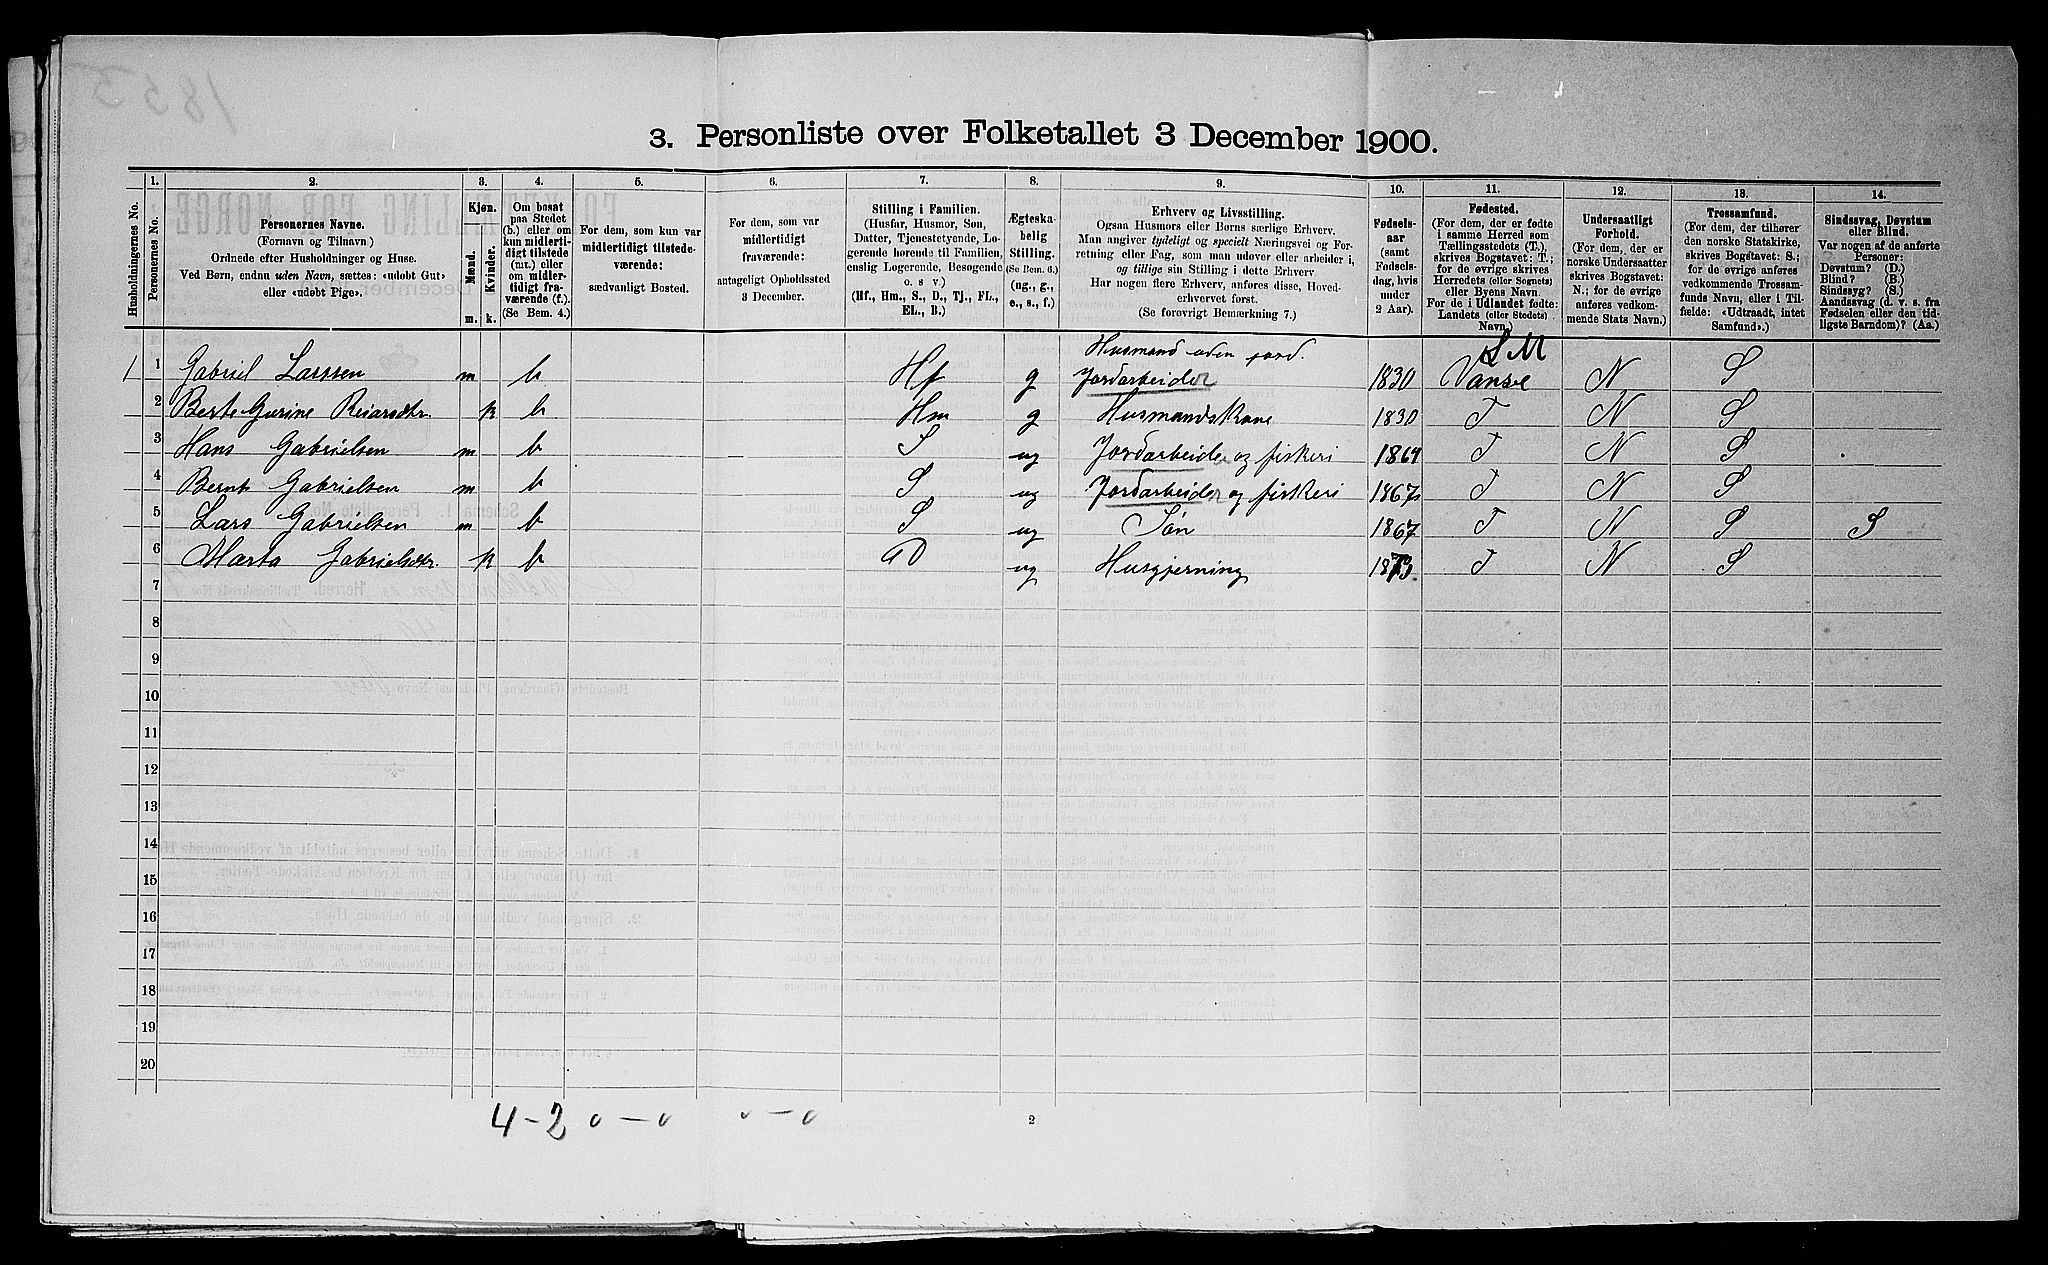 3. Personliste over Folketallet 3 December 1900.
1. 2. 3. 4. 5. 6. 7. 8. 9. 10. 11. 12. 13. 14.
Husholdningernes No.
Personernes No.
Personernes Navne.
(Fornavn og Tilnavn)
Ordnede efter Husholdninger og Huse.
Ved Børn, endnu uden Navn, sættes: «udøbt Gut»
eller «udøbt Pige».
Kjøn.
Mænd.
Kvinder.
m. k.
Om bosat
paa Stedet
(b.) eller om
kun midlerti-
digt tilstede
(mt.) eller
om midler-
tidigt fra-
værende (f.).
(Se Bem. 4.)
For dem, som kun var
midlertidigt tilstede-
værende:
sædvanligt Bosted.
For dem, som var
midlertidigt
fraværende:
antageligt Opholdssted
3 December.
Stilling i Familien.
(Husfar, Husmor, Søn,
Datter, Tjenestetyende, Lo-
gerende hørende til Familien,
enslig Logerende, Besøgende
o. s. v.)
(Hf., Hm., S., D., Tj., FL.,
EL., B.)
Ægteska-
belig
Stilling.
(Se Bem. 6.)
(ug., g.,
e., s., f.)
Erhverv og Livsstilling.
Ogsaa Husmors eller Børns særlige Erhverv.
Man angiver tydeligt og specielt Næringsvei og For-
retning eller Fag, som man udøver eller arbeider i,
og tillige sin Stilling i dette Erhverv.
Har nogen flere Erhverv, anføres disse, Hoved-
erhvervet først.
(Se forøvrigt Bemærkning 7.)
Fødsels-
aar
(samt
Fødsels-
dag, hvis
under
2 Aar).
Fødested.
(For dem, der er fødte
i samme Herred som
Tællingsstedets (T.),
skrives Bogstavet: T.;
for de øvrige skrives
Herredets (eller Sognets)
eller Byens Navn.
For de i Udlandet fødte:
Landets (eller Stedets)
Navn.)
Undersaatligt
Forhold.
(For dem, der er
norske Undersaatter
skrives Bogstavet:
N.; for de øvrige
anføres vedkom-
mende Stats Navn.)
Trossamfund.
(For dem, der tilhører
den norske Statskirke,
skrives Bogstavet: S.;
for de øvrige anføres
vedkommende Trossam-
funds Navn, eller i Til-
fælde: «Udtraadt, intet
Samfund».)
Sindssvag, Døvstum
eller Blind.
Var nogen af de anførte
Personer:
Døvstum? (D.)
Blind? (B.)
Sindssyg? (S.)
Aandssvag (d. v. s. fra
Fødselen eller den tid-
ligste Barndom)? (Aa.)
Husmand uden jord. S M
1 1 Gabriel Larssen m b Hf g Jordarbeider 1830 Vanse N S
2 Berte Gurine Reiarsdtr. k b Hm g Husmandskone 1830 T N S
3 Hans Gabrielsen m b S ug Jordarbeider og fiskeri 1864 T N S
4 Bernt Gabrielsen m b S ug Jordarbeider og fiskeri 1867 T N S
5 Lars Gabrielsen m b S ug Søn 1867 T N S S
6 Marta Gabrielsdtr. k b D ug Husgjerning 1873. T N S
7
8
9
10
11
12
13
14
15
16
17
18
19
20
4-2 0-0 0-0
2